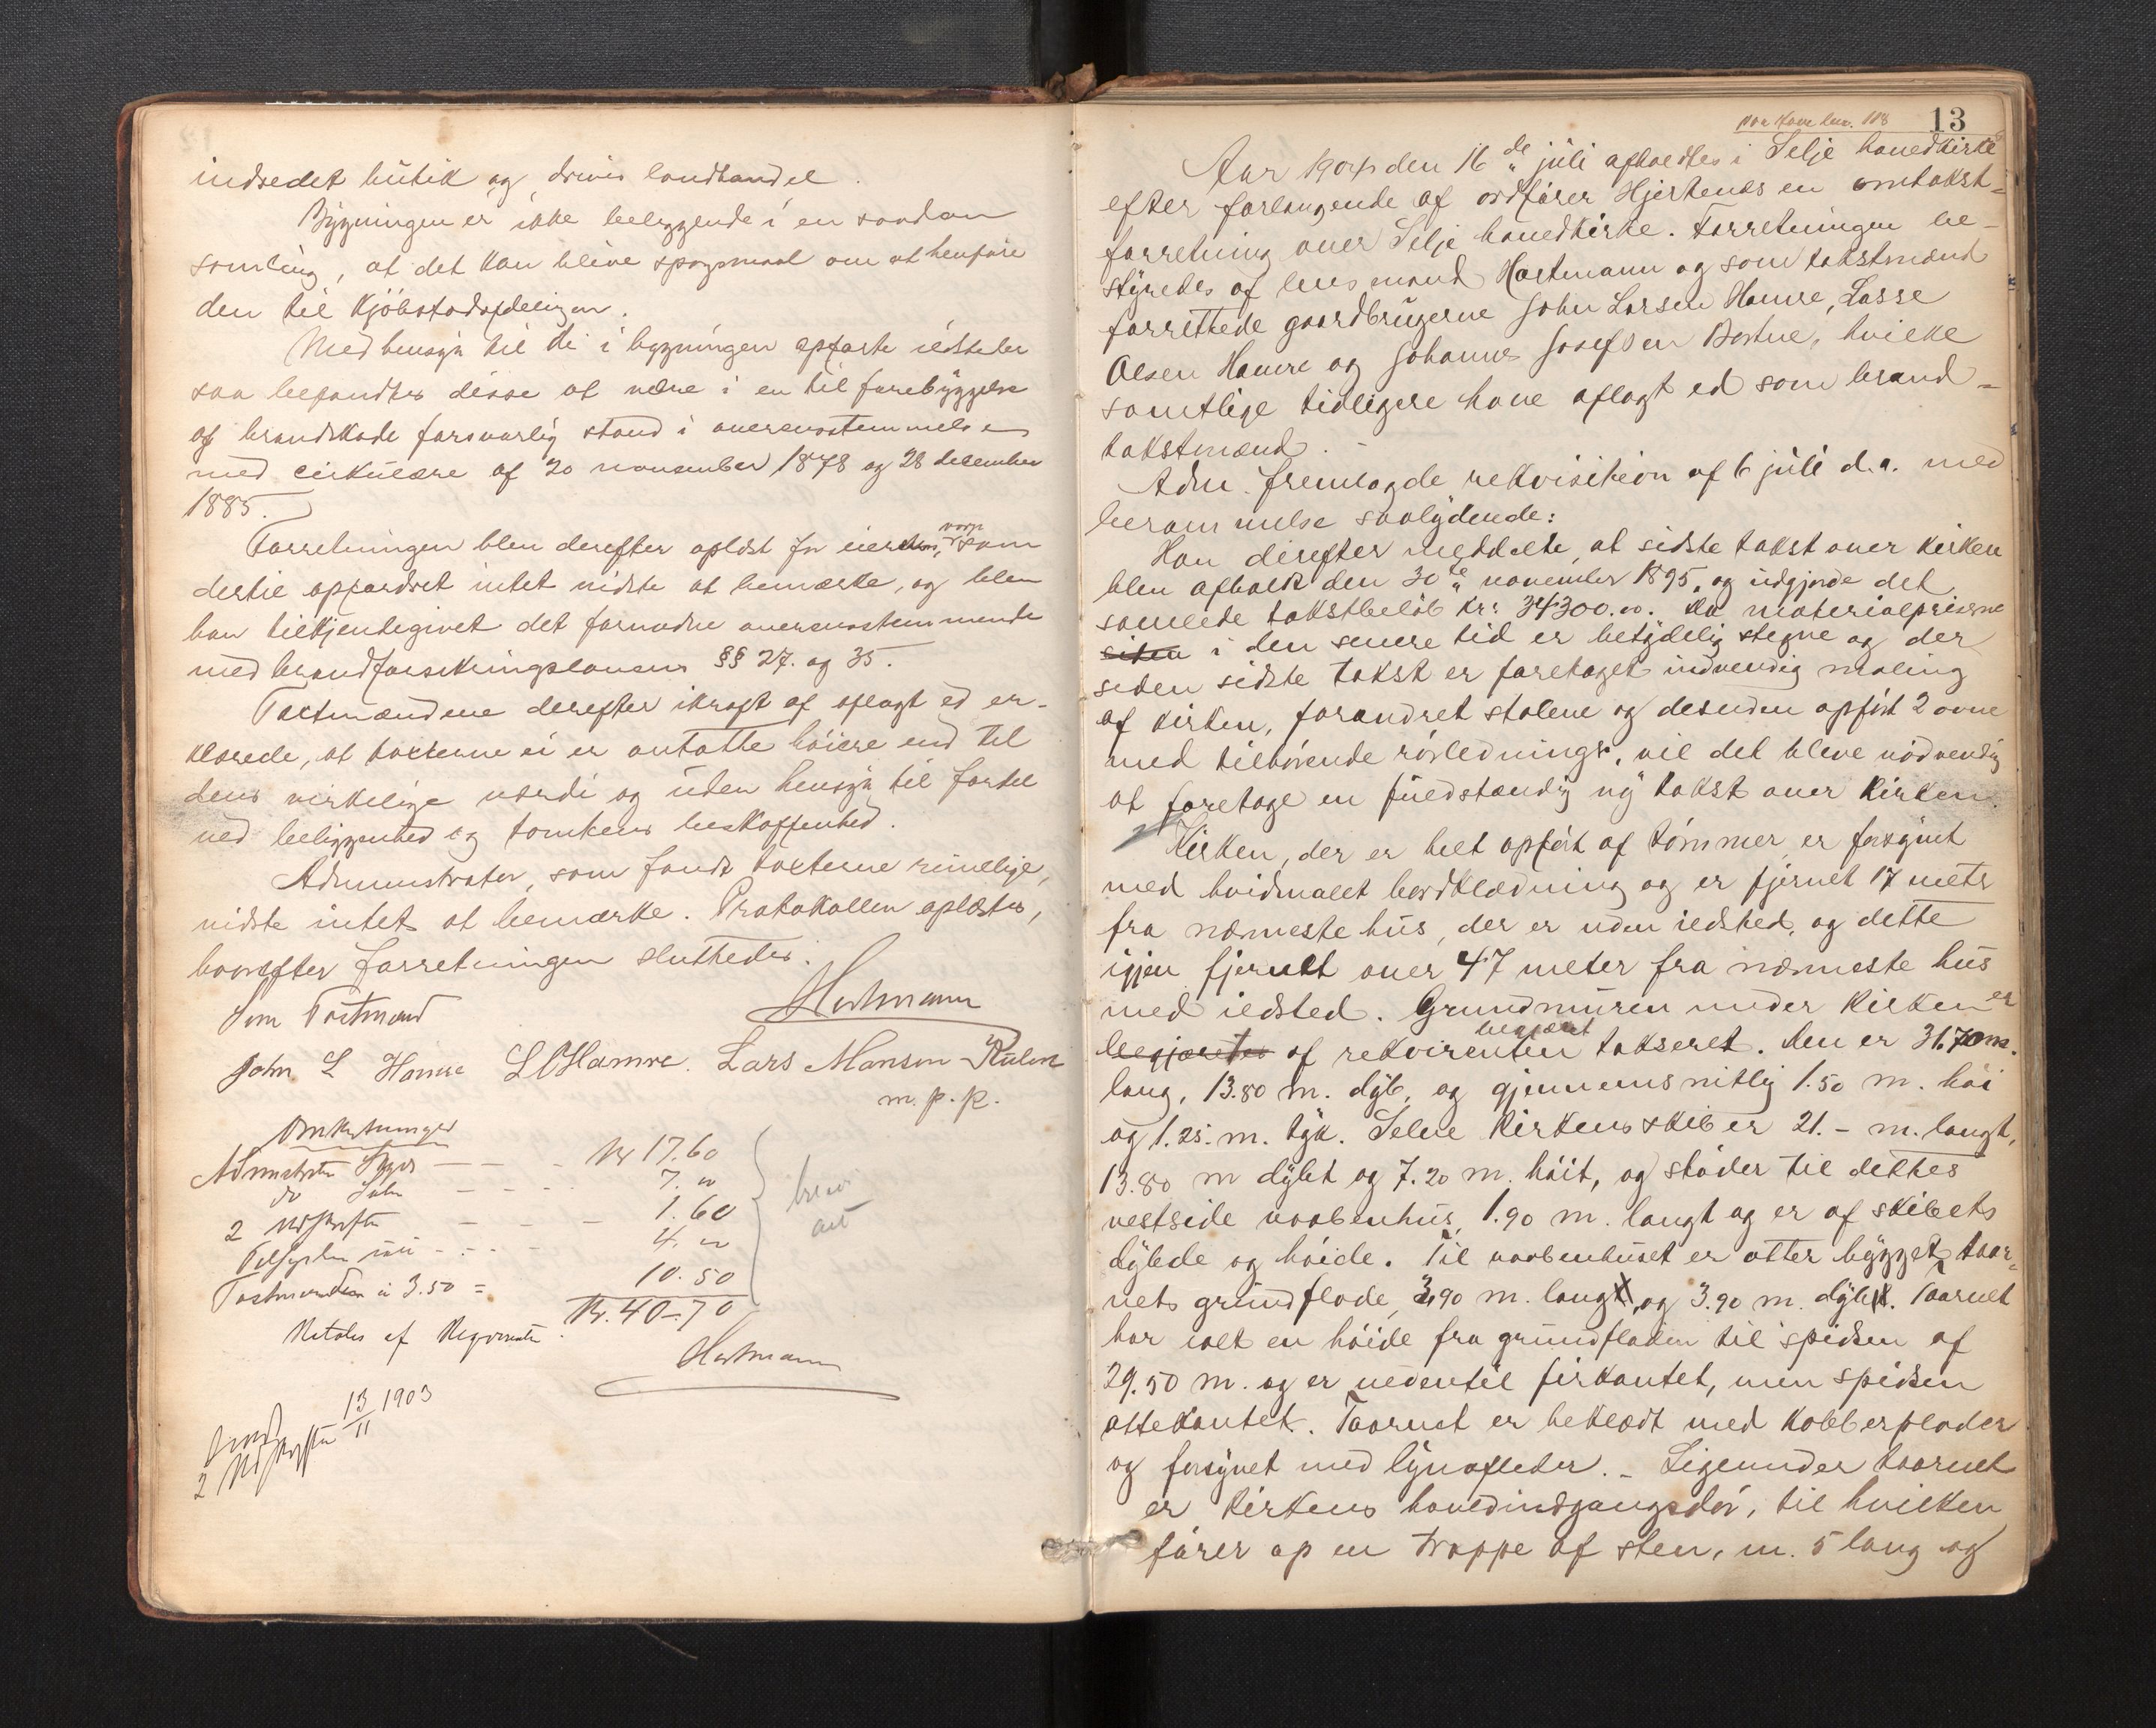 indredet butik og drives landhandel.
Bygningen er ikke beliggende i en saadan
samling, at det kan blive spørgsmaal om at henføre
den til Kjøbstadafdelingen.
Med hensyn til de i bygningen opførte ildsteder
saa befandtes disse at være i en til forebyggelse
af brandskade forsvarlig stand i overensstemmelse
med cirkulære af 20 november 1878 og 28 december
1885.
Forretningen blev derefter oplæst for eieren, som
dertil opfordret intet vidste at bemærke, og blev
han tilkjendegivet det fornødne overensstemmende
med brandforsikringslovens §§ 27. og 35.
Taxtmændene derefter ikraft af aflagt ed er-
klærede, at taxterne ei er ansatte høiere end til
dens virkelige værdi og uden hensyn til fordel
ved beliggenhed og tomtens beskaffenhed.
Administrator, som fandt taxterne rimelige,
vidste intet at bemærke. Protokollen oplæstes,
hvorefter forretningen sluttedes.
Hartmann
Som Taxtmænd
John L Hamre L O Hamre. Lars Monsen
m. p. p.
Omkostninger
Kr 17.60
7. "
2 Udskrifter 1.60
4. "
Taxtmændene à 3.50 = 10.50
Kr. 40.70
Betales af Rekvirenten
Hartmann
13/11 1903
2 Udskrifter
13
Aar 1904 den 16de juli afholdtes i Selje hovedkirke
efter forlangende af ordfører Hjertenæs en omtakst-
forretning over Selje hovedkirke. Forretningen be-
styredes af lensmand Hartmann og som takstmænd
forrettede gaardbrugerne John Larsen Hamre, Lasse
Olsen Hamre og Johannes Josefsen, hvilke
samtlige tidligere have aflagt ed som brand-
takstmænd.
Adm. fremlagde rekvisition af 6 juli d.a. med
berammelse saalydende:
Han derefter meddelte, at sidste takst over kirken
blev afholdt den 30te november 1895, og udgjorde det
samlede takstbeløb kr: 34300.00. Da materialpriserne
siden i den senere tid er betydelig stegne og der
siden sidste takst er foretaget indvendig maling
af kirken, forandret stolene og desuden opført 2 ovne
med tilhørende rørledninger, vil det blive nødvendig
at foretage en fuldstændig ny takst over kirken.
Kirken, der er helt opført af tømmer, er forsynet
med hvidmalet bordklædning og er fjernet 17 meter
fra nærmeste hus, der er uden ildsted, og dette
igjen fjernet over 47 meter fra nærmeste hus
med ildsted. Grundmuren under kirken er
begjæres begjært af rekvirenten takseret. Den er 31.70 m.
lang, 13.80 m. dyb, og gjennemsnitlig 1.50 m. høi
og 1.25. m. tyk. Selve kirkens skib er 21. - m. langt,
13.80 m dybt og 7.20 m. høit, og støder til dettes
vestside vaabenhus, 1.90 m. langt og er af skibets
dybde og høide. Til vaabenhuset er atter bygget taar-
nets grundflade, 3,90 m. lang, og 3.90 m. dyb. Taarnet
har ialt en høide fra grundfladen til spidsen af
29.50 m. og er nedentil firkantet, men spidsen
ottekantet. Taarnet er beklædt med kobberplader
og forsynet med lynafleder. - Ligeunder taarnet
er kirkens hovedindgangsdør, til hvilken
fører op en trappe af sten, m. 5 lang og